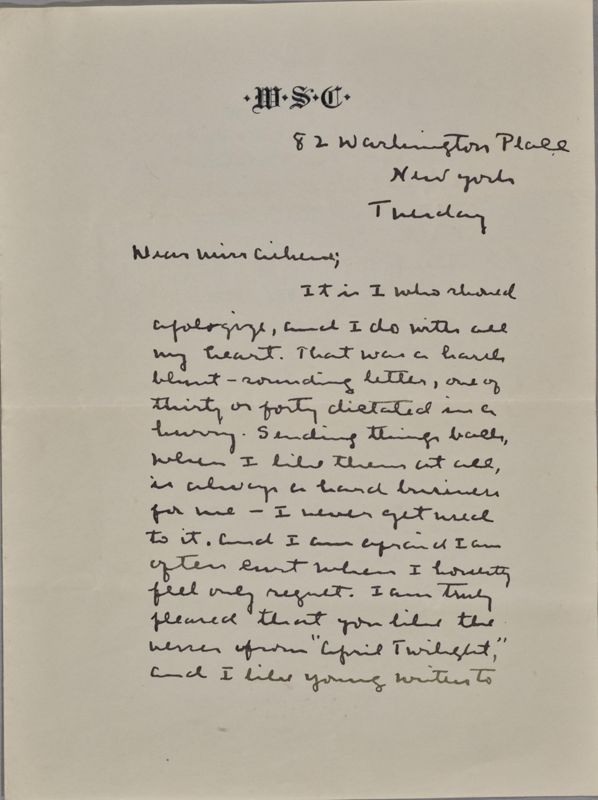 ·W·S·C·
82 Washington Place
New York
Tuesday
Dear Miss
It is I who should
apologize, and I do with all
my heart. That was a harsh
blunt-sounding letter, one of
thirty or forty dictated in a
hurry. Sending things back,
when I like them at all,
is always a hard business
for me – I never get used
to it. And I am afraid I am
often curt when I honestly
feel only regret. I am truly
pleased that you like the
verses from "April Twilight,"
and I like young writers to